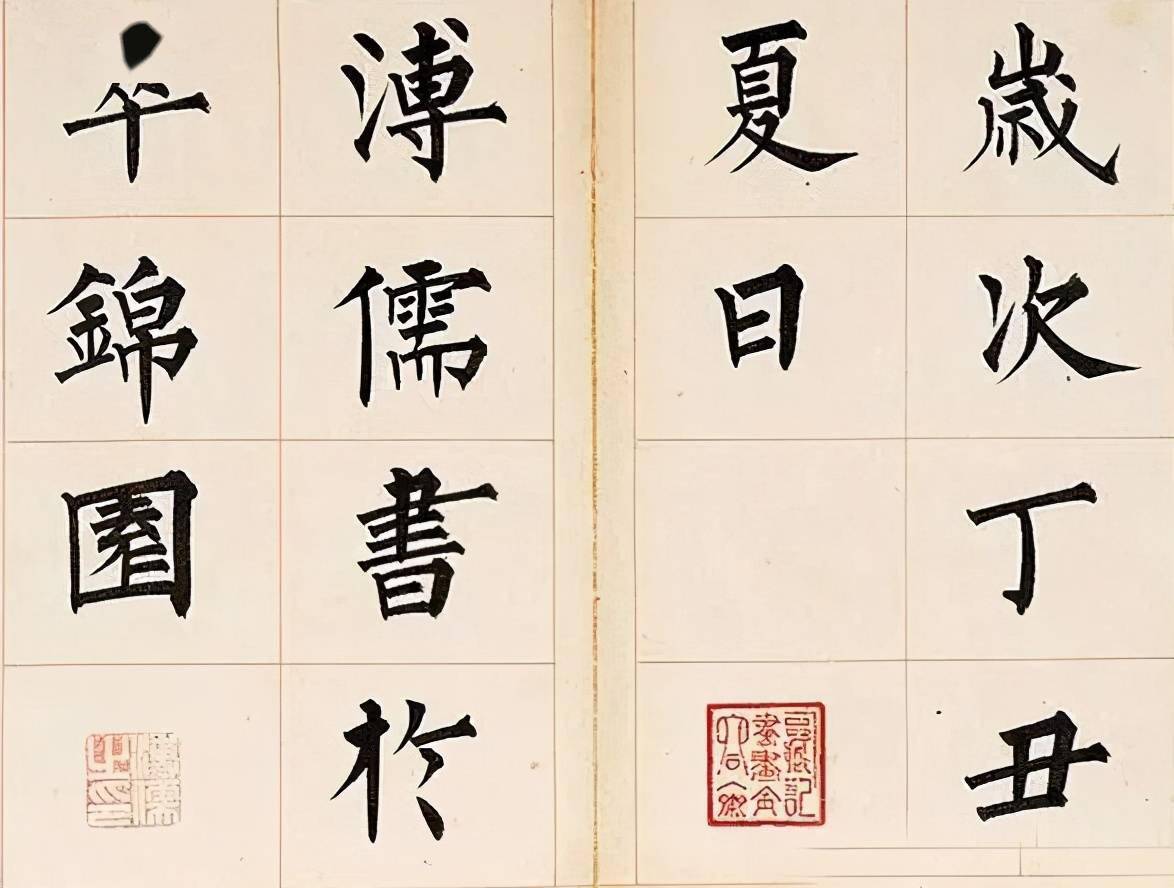 嵗次丁丑
夏日
溥儒書於
錦園